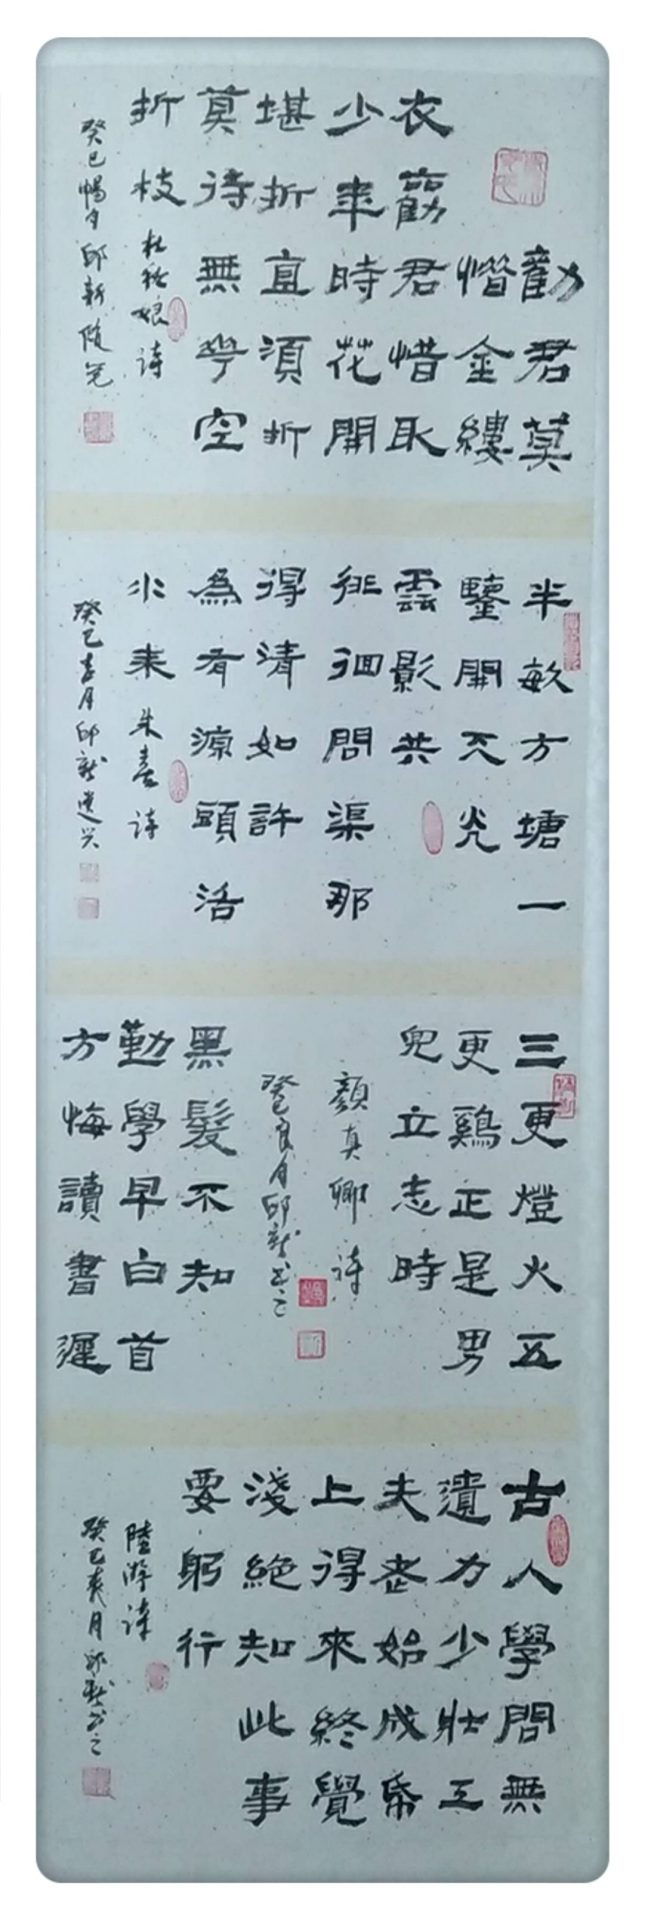 勸君莫
惜金縷
衣勸君惜取
少年時花開
堪折直須折
莫待無華空
折枝
杜秋娘诗
癸巳暢月邱新随笔
半畝方塘一
鑒開天光
雲影共
徘徊問渠那
得清如許
為有源頭活
水来
朱熹诗
癸巳吉月邱新遣兴
三更燈火五
更鷄正是男
兒立志時
顏真卿诗
癸巳良月邱新书之
黑髮不知
勤學早白首
方悔讀書遲
古人學問無
遺力少壯工
夫老始成帋
上得來終覺
淺絕知此事
要躬行
陸游诗
癸巳月邱新书之